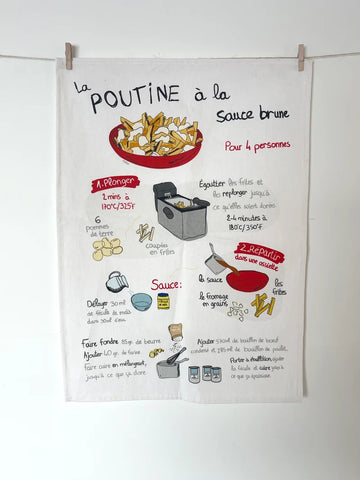 La POUTINE à la
sauce brune
Pour 4 personnes
1. Plonger
2 mins à
170°C/325F
6
pommes
de terre
coupées
en frites
Égoutter les frites et
les replonger jusqu'à
ce qu'elles soient dorées
2-4 minutes à
180°C/350°F
2. Repartir
dans une assiette
la sauce
les
frites
le fromage
en grains
Sauce:
Délayer 30 ml
de fécule de maïs
dans 30ml d'eau
Faire fondre 85 gr. de beurre
Ajouter 40 gr. de farine
faire cuire en mélangeant,
jusqu'à ce que ça dore
Ajouter 570 ml de bouillon de bœuf
condensé et 285 ml de bouillon de poulet,
Porter à ébullition, ajouter
la fécule et cuire jusqu'à
ce que ça épaississe